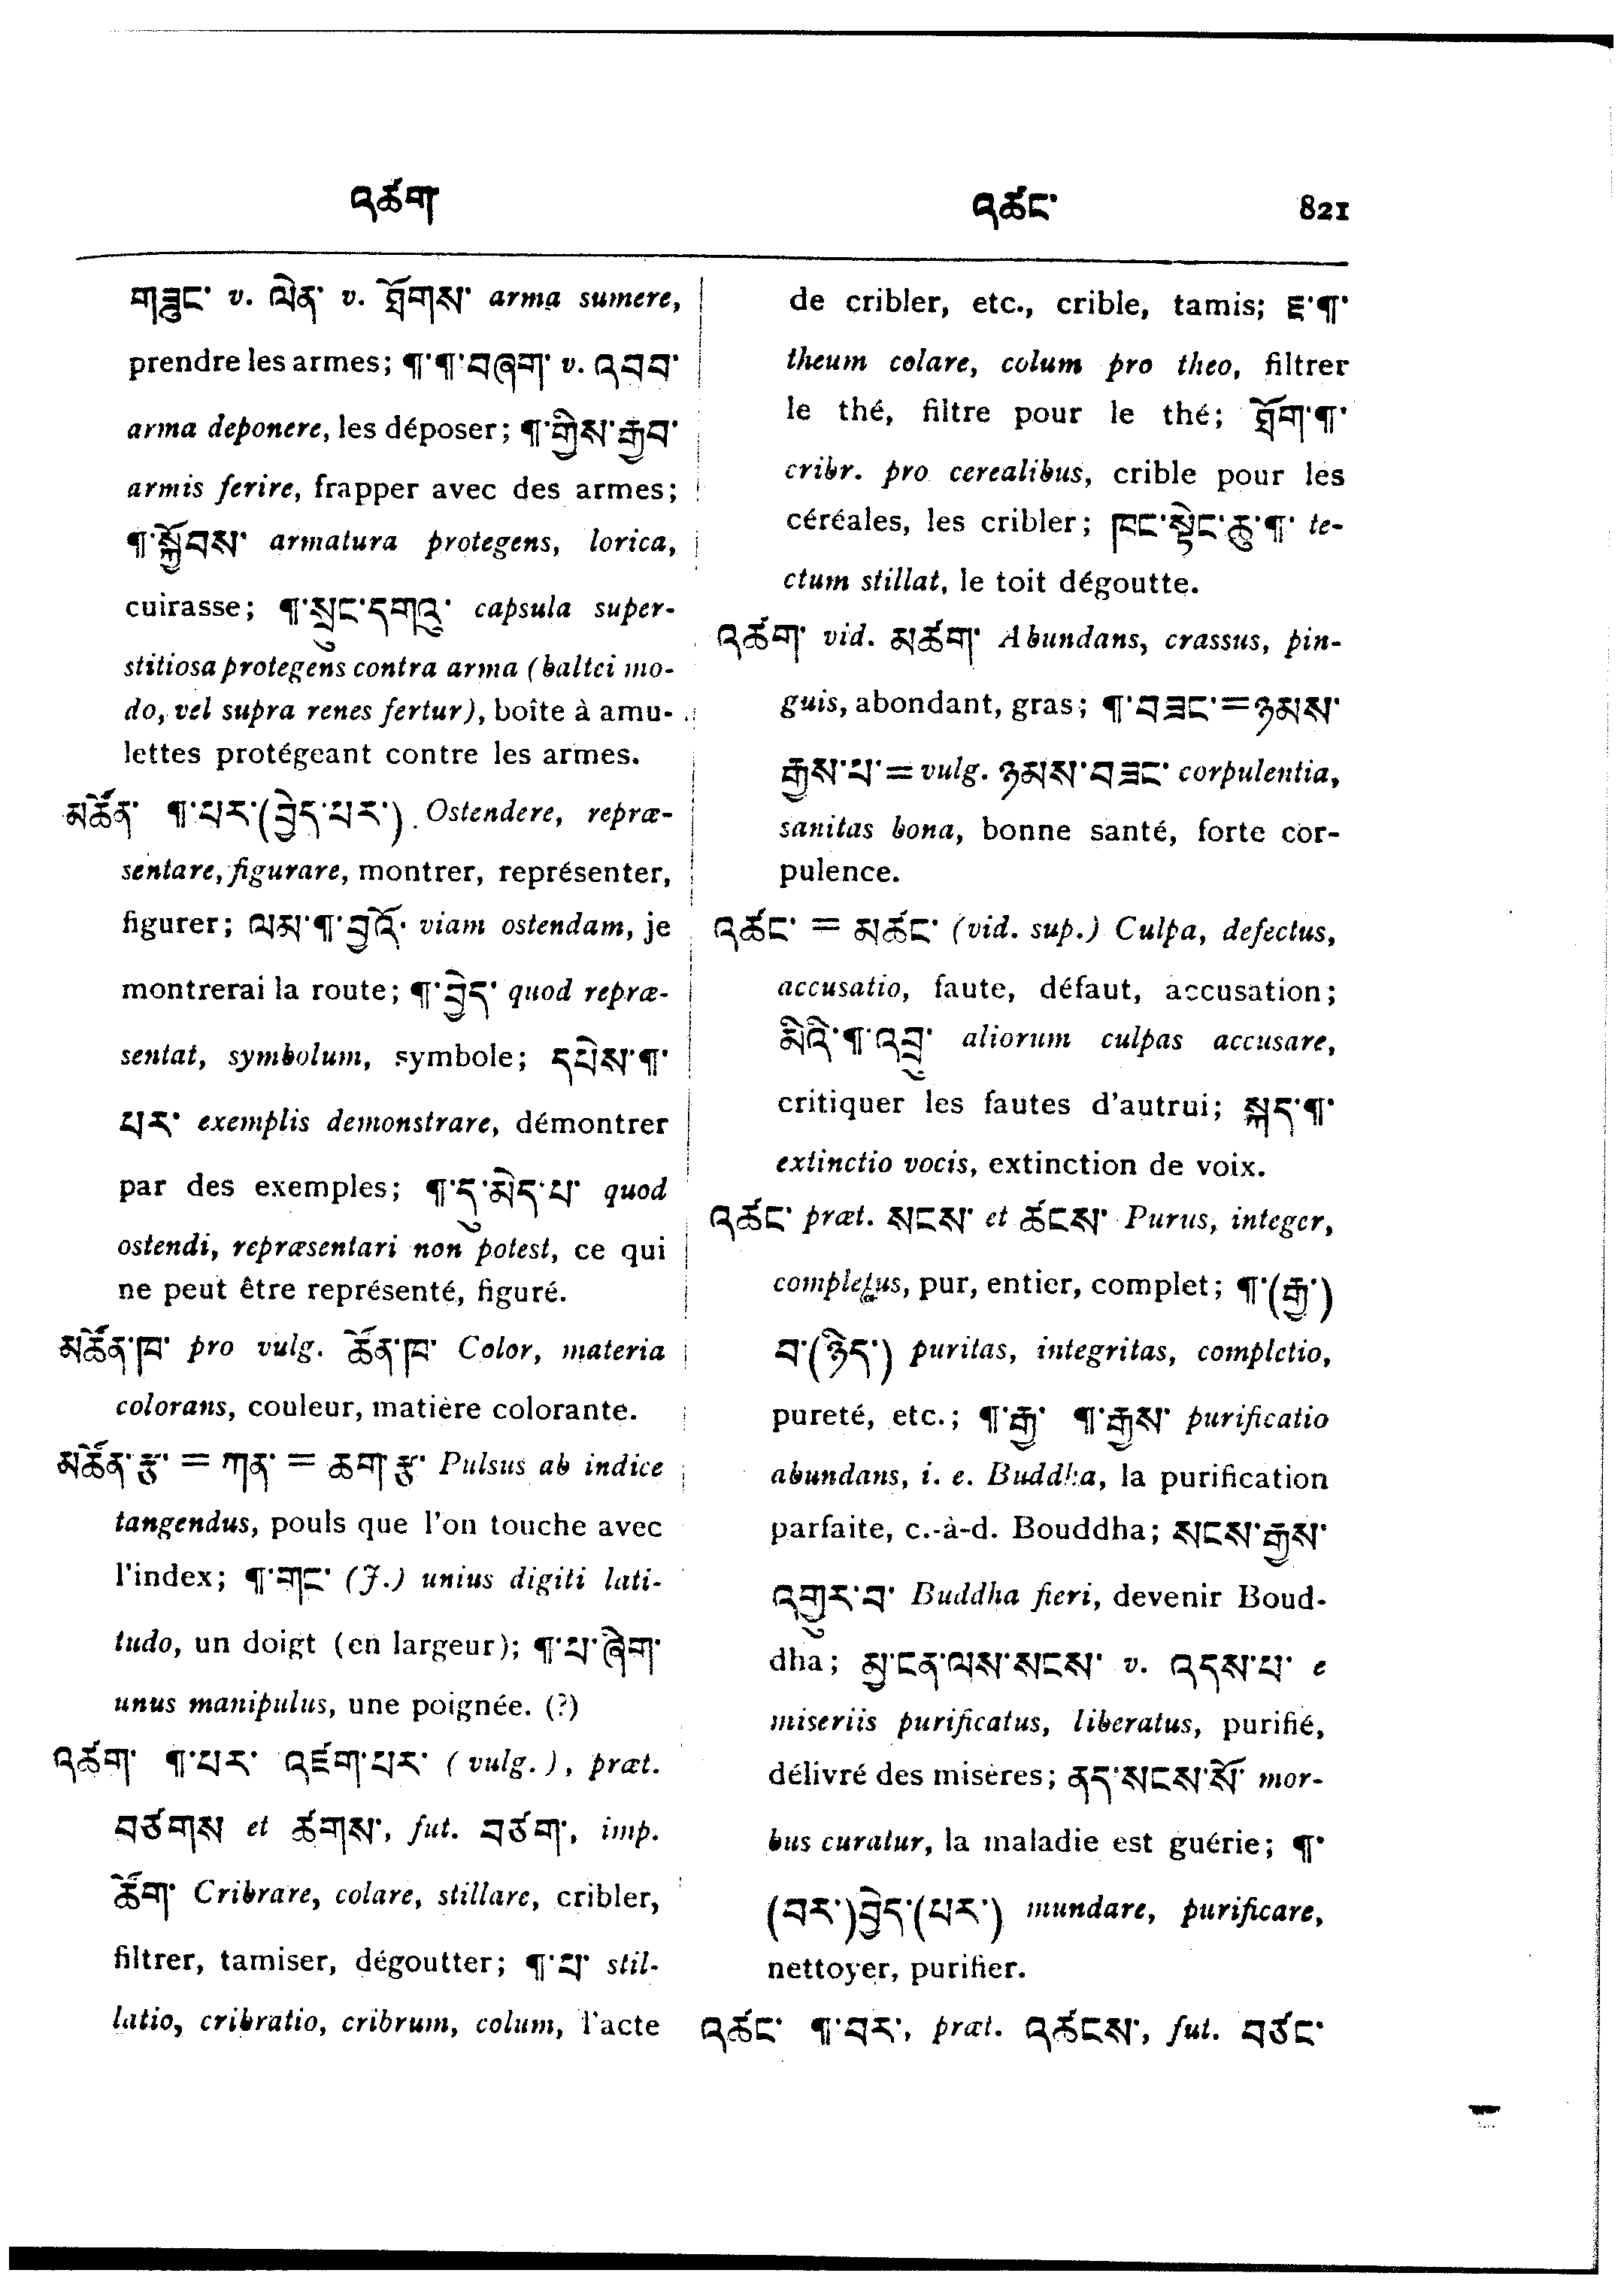 འཚག
འཚང་ 821
གཟུང་ v. ལེན་ v. ཐོགས་ arma sumere,
prendre les armes; ¶་¶་བཞག་ v. འབབ་
arma deponere, les déposer; ¶་གྱིས་རྒྱབ་
armis ferire, frapper avec des armes;
¶་སྐྱོབས་ armatura protegens, lorica,
cuirasse; ¶་སྲུང་དགའུ་ capsula super-
stitiosa protegens contra arma (baltei mo-
do, vel supra renes fertur), boîte à amu-
lettes protégeant contre les armes.
མཚོན་ ¶་པར་(བྱེད་པར་) Ostendere, repræ-
sentare, figurare, montrer, représenter,
figurer; ལམ་¶་བྱའོ་ viam ostendam, je
montrerai la route; ¶་བྱེད་ quod repræ-
sentat, symbolum, symbole; དཔེས་¶་
པར་ exemplis demonstrare, démontrer
par des exemples; ¶་དུ་མེད་པ་ quod
ostendi, repræsentari non potest, ce qui
ne peut être représenté, figuré.
མཚོན་ཁ་ pro vulg. ཚོན་ཁ་ Color, materia
colorans, couleur, matière colorante.
མཚོན་རྩ་ = ཀན་ = ཆག་རྩ་ Pulsus ab indice
tangendus, pouls que l'on touche avec
l'index; ¶་གང་ (J.) unius digiti lati-
tudo, un doigt (en largeur); ¶་པ་ཞིག་
unus manipulus, une poignée. (?)
འཚག་ ¶་པར་ འཛག་པར་ (vulg.), præt.
བཙགས et ཚགས་, fut. བཙག་, imp.
ཚོག་ Cribrare, colare, stillare, cribler,
filtrer, tamiser, dégoutter; ¶་པ་ stil-
latio, cribratio, cribrum, colum, l'acte
de cribler, etc., crible, tamis; ཇ་¶་
theum colare, colum pro theo, filtrer
le thé, filtre pour le thé; ཐོག་¶་
cribr. pro cerealibus, crible pour les
céréales, les cribler; ཁང་སྟེང་ཆུ་¶་ te-
ctum stillat, le toit dégoutte.
འཚག་ vid. མཚག་ Abundans, crassus, pin-
guis, abondant, gras; ¶་བཟང་=ཉམས་
རྒྱས་པ་= vulg. ཉམས་བཟང་ corpulentia,
sanitas bona, bonne santé, forte cor-
pulence.
འཚང་ = མཚང་ (vid. sup.) Culpa, defectus,
accusatio, faute, défaut, accusation;
མིའི་¶་འབྲུ་ aliorum culpas accusare,
critiquer les fautes d'autrui; སྐད་¶་
extinctio vocis, extinction de voix.
འཚང་ præt. སངས་ et ཚངས་ Purus, integer,
completus, pur, entier, complet; ¶་(རྒྱ་)
བ་(ཉིད་) puritas, integritas, completio,
pureté, etc.; ¶་རྒྱ་ ¶་རྒྱས་ purificatio
abundans, i. e. Buddha, la purification
parfaite, c.-à-d. Bouddha; སངས་རྒྱས་
འགྱུར་བ་ Buddha fieri, devenir Boud-
dha; མྱ་ངན་ལས་སངས་ v. འདས་པ་ e
miseriis purificatus, liberatus, purifié,
délivré des misères; ནད་སངས་སོ་ mor-
bus curatur, la maladie est guérie; ¶་
(བར་)བྱེད་(པར་) mundare, purificare,
nettoyer, purifier.
འཚང་ ¶་བར་, præt. འཚངས་, fut. བཙང་